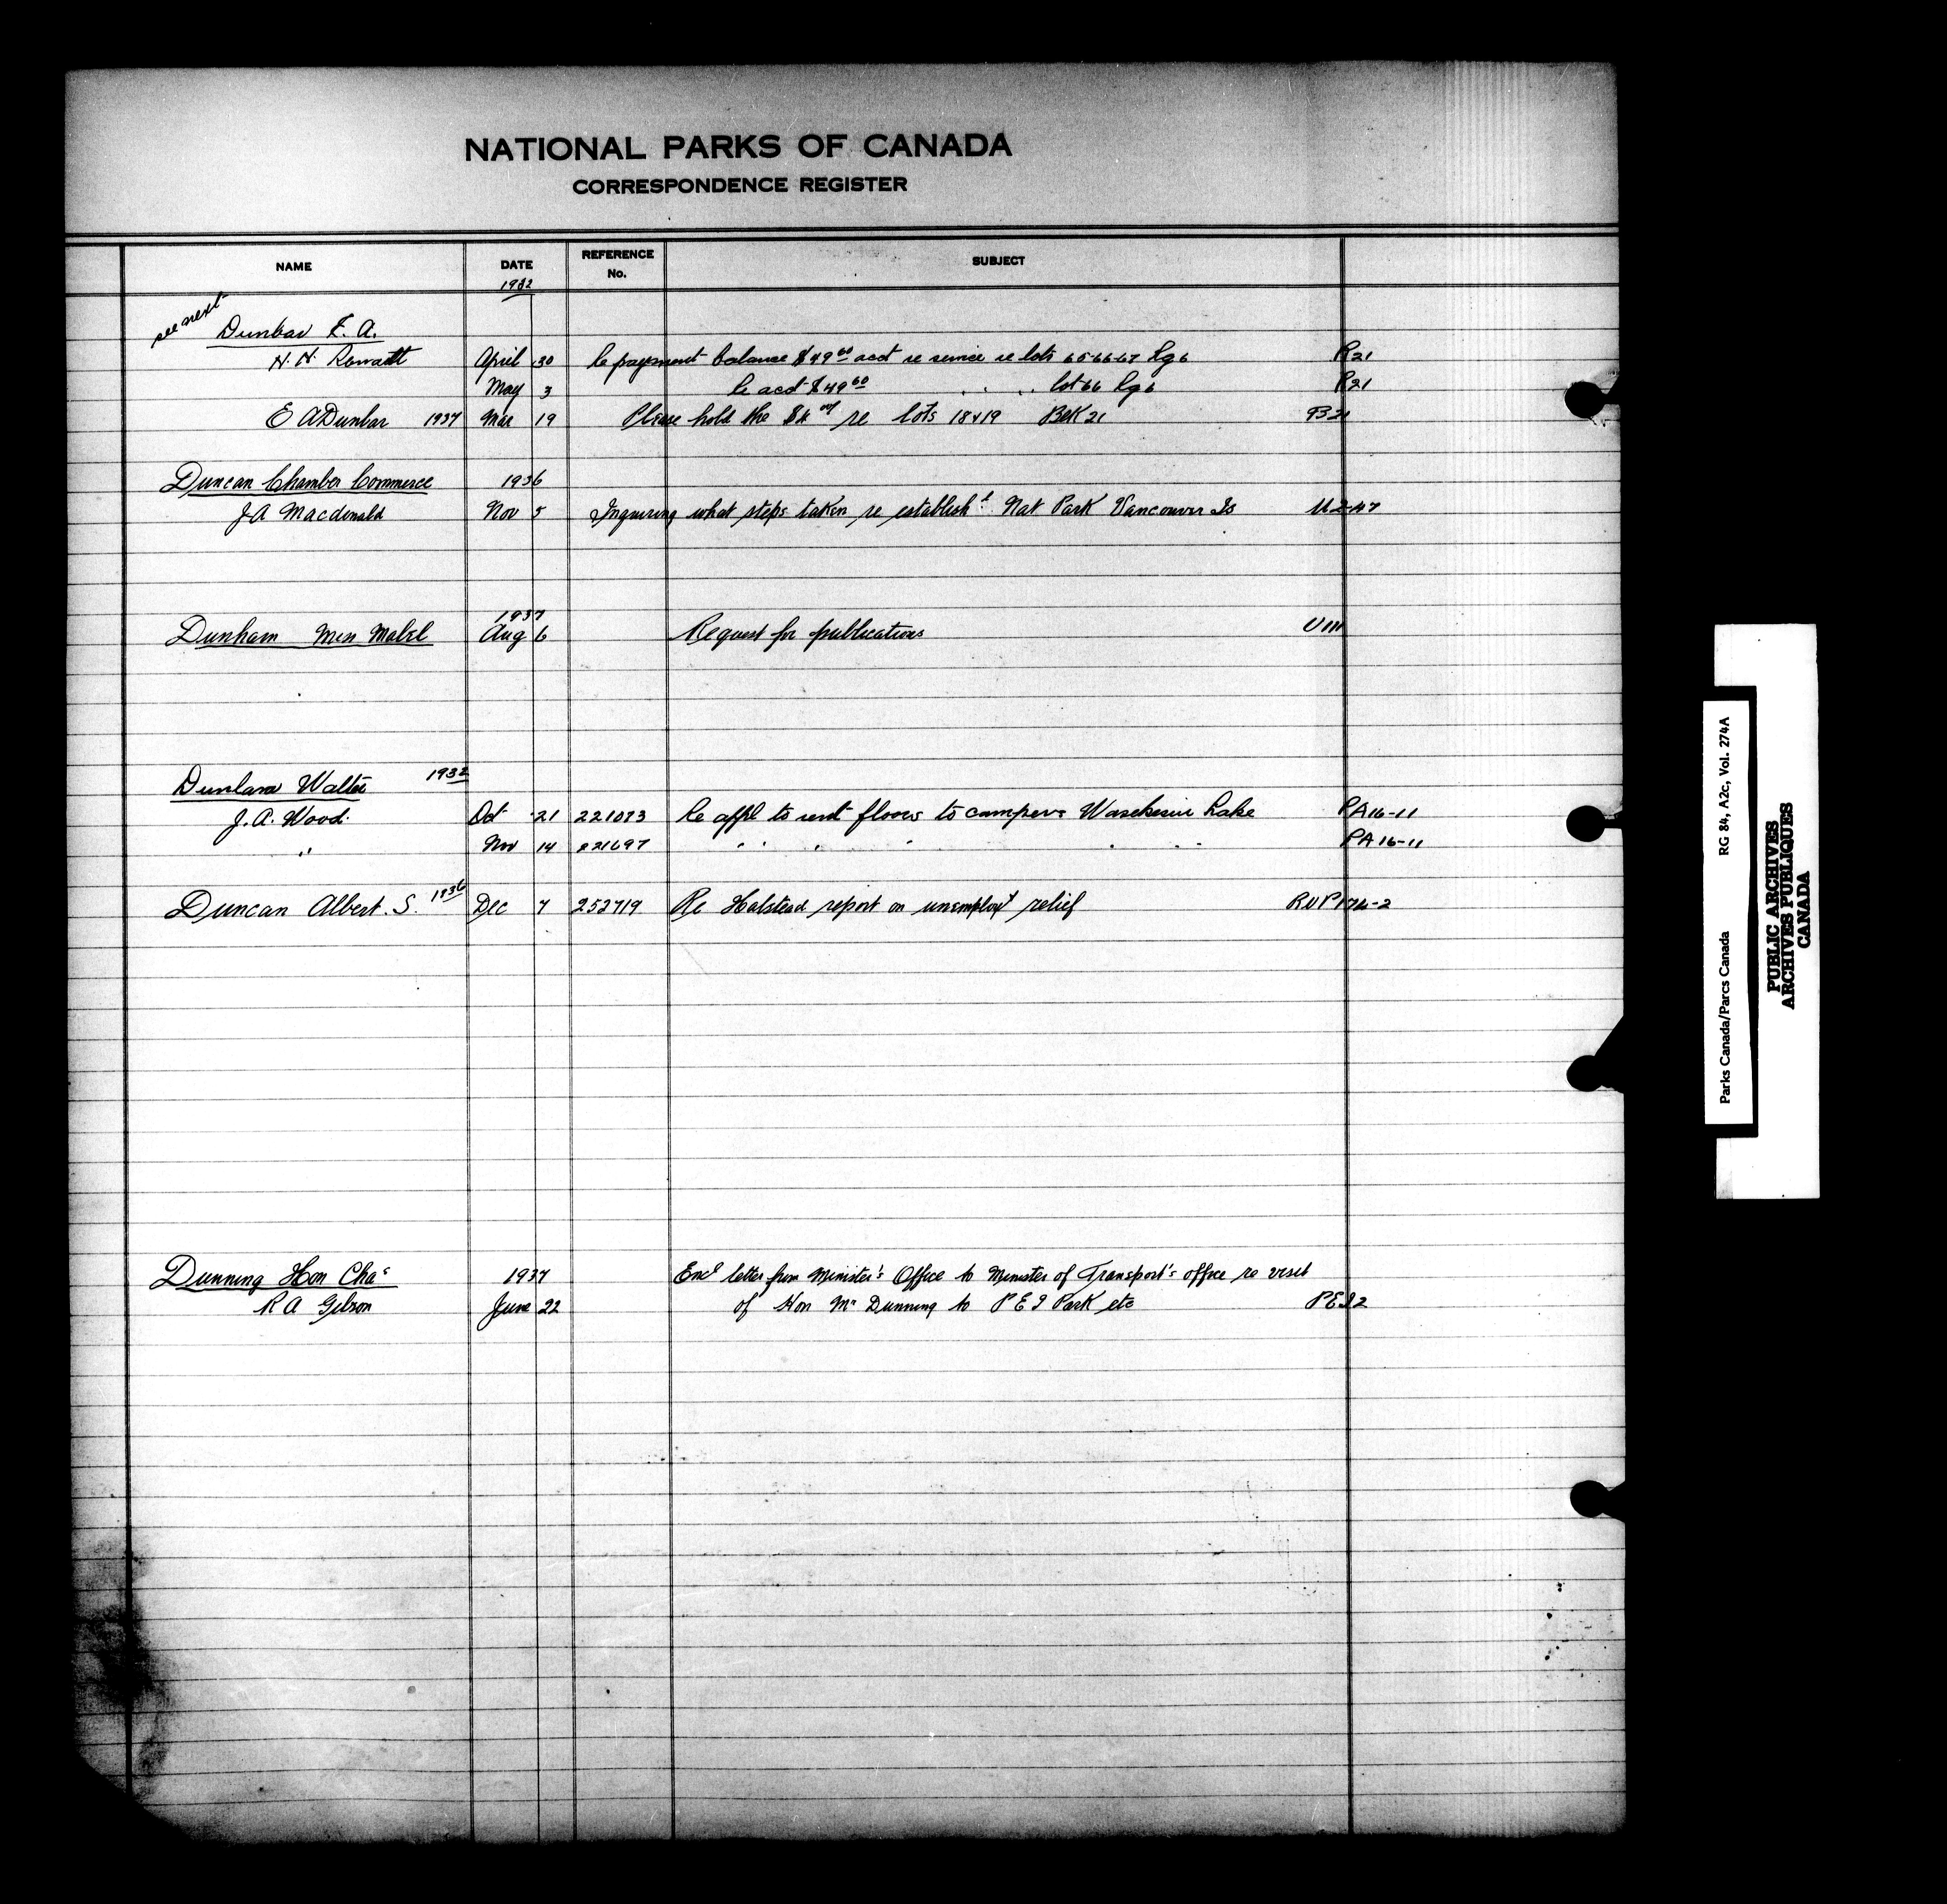 NATIONAL PARKS OF CANADA
CORRESPONDENCE REGISTER
NAME DATE REFERENCE No. SUBJECT
1932
see next
Dunbar E. A.
H. H. Rowatt April 30 Re payment balance $49.60 acct re service re lots 65-66-67 Rg 6 R21
May 3 Re acct $49.60 " " " lot 66 Rg 6 R21
E A Dunbar 1937 Mar 19 Please hold the re lots 18 & 19 Blk 21 B21
Duncan Chamber Commerce 1936
J A Macdonald Nov 5 Inquiring what steps taken re establisht Nat Park Vancouver Is U2-47
1937
Dunham Miss Mabel Aug 6 Request for publications U111
Walter 1932
J. A. Wood. Oct 21 221093 Re appl to rent floors to campers Waskesiu Lake PA16-11
" Nov 14 221697 " " " " " " " PA16-11
Duncan Albert. S. 1936 Dec 7 252719 Re Halstead report on unemployt relief RUP174-2
Dunning Hon Chas 1937 Encl letter from Minister's Office to Minister of Transport's office re visit
R A Gibson June 22 of Hon Mr Dunning to P E I Park etc PEI2
Parks Canada/Parcs Canada RG 84, A2c, Vol. 274A
PUBLIC ARCHIVES
ARCHIVES PUBLIQUES
CANADA